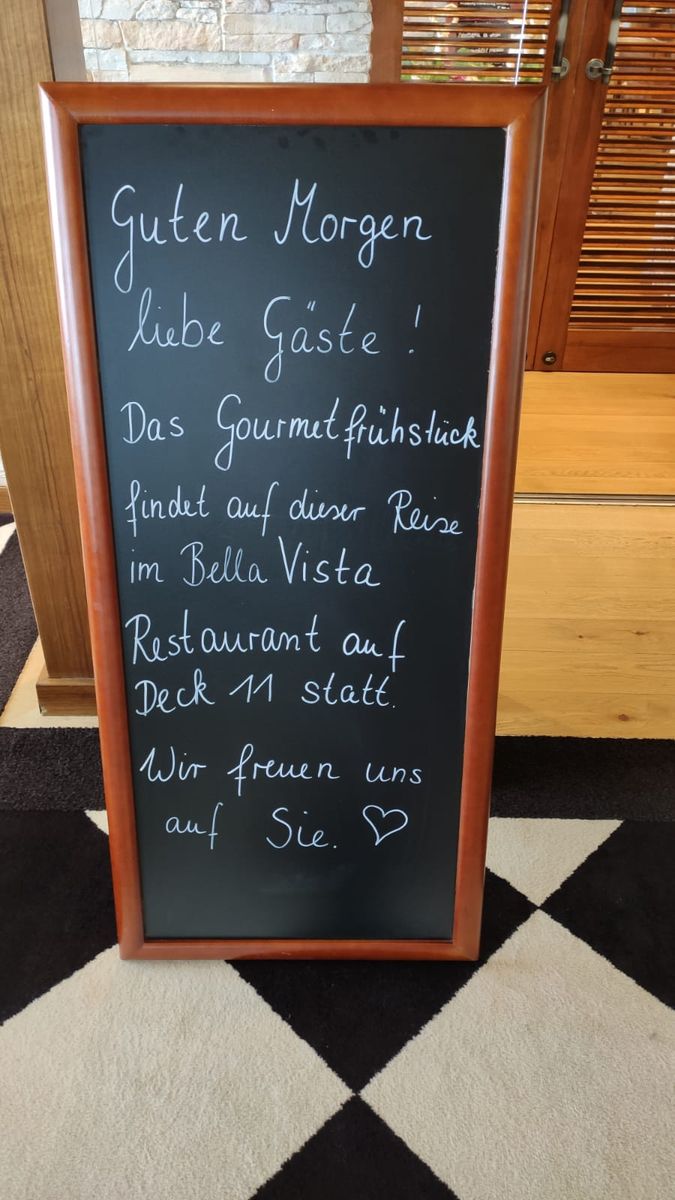 Guten Morgen
liebe Gäste !
Das Gourmetfrühstück
findet auf dieser Reise
im Bella Vista
Restaurant auf
Deck 11 statt.
Wir freuen uns
auf Sie. ♡